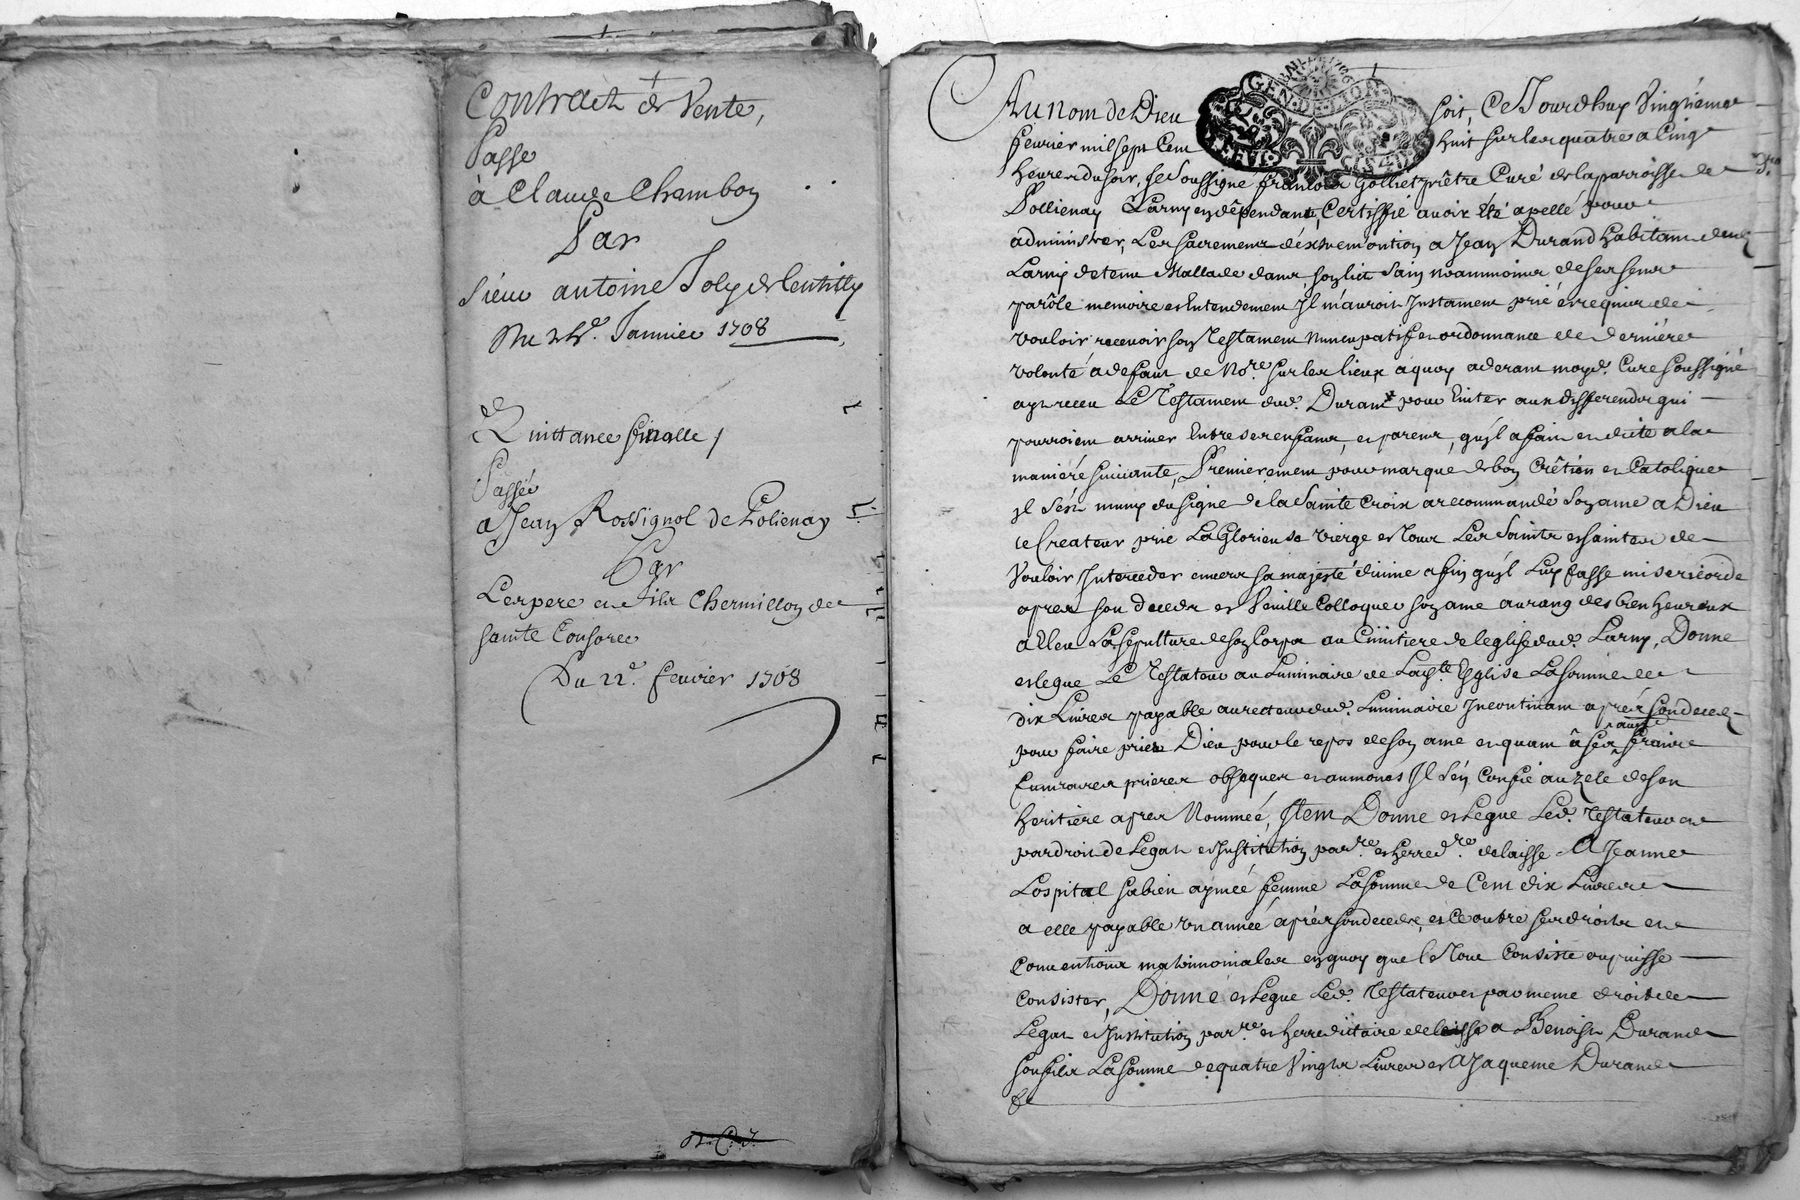 Contract de Vente,
Passe
à Claude Chambon
Par
Sieur antoine Joly de Lentilly
Du 24e. Janvier 1708
Quittance finalle,
Passée
a Jean Rossignol de Polienay
Par
Les pere et fils Chermillon de
sainte Consorce
Du 22e. fevrier 1708
GEN. DE LION
Au nom de Dieu soit, Ce Jourdhuy Vingtième
fevrier mil sept Cent huit sur les quatre a Cinq
heures du soir, Je Soussigné françois Golliet prêtre Curé de la parroisse de
Pollienay Larny en dêpendant, Certiffié avoir Eté apellé pour
administrer, Les sacrements déxtremontion a Jean Durand habitant dud.
Larny detenu Mallade dans son lict Sain neammoins de ses sens
parôle memoire et Entendement Jl m'auroit Jnstament prié et requier de
vouloir recevoir son Testament Nuncupatif et ordonnance de derniére
volonté à defaut de Nore. sur les lieux à quoy aderant moyd. Curé soussigné
ay receu Le Testament dud. Durant pour Eviter aux differendes qui
pourroient arriver Entre ses enfants, et parens, qu'jl a fait et dicté a la
maniére suivante, Premierement pour marque de bon Crêtien et Catolique
jl s'est muny du signe de la Sainte Croix a recommandé son ame a Dieu
le Createur prié La Glorieuse Vierge et Tous Les Saints et saintes de
Vouloir Jnterceder envers sa majesté divine afin qu'jl Luy fasse misericorde
apres son deceds et Veuille Colloquer son ame au rang des bien heureux
a Eleu La sepulture de son Corps au Cimitiere de leglise dud. Larny, Donne
et legue Le Testateur au Luminaire de Layte. Esglise La somme de
dix Livres payable au recteur dud. Luminaire Jncontinant aprés son deceds
pour faire prier Dieu pour le repos de son ame et quant â ses autres frairie
funeraires prieres obseques et aumones Jl s'en Confie au zele de son
heritiere apres Nommeé, Jtem Donne et Legue Led. Testateur et
par droit de Legat et Jnstitution parre. et herredre. delaisse A Jeanne
Lospital sa bien aymeé femme La somme de Cent dix Livres
a elle payable un année aprés son deceds, et Ce outre ses droits et
Conventions matrimoniales en quoy que le Tout Consiste ou puisse
Consister, Donne et Legue Led. Testateur et par meme droit de
Legat et Jnstitution parre. et herredittaire delaisse a Benoist Durand
son fils La somme de quatre Vingts Livres et A Jaqueme Durand